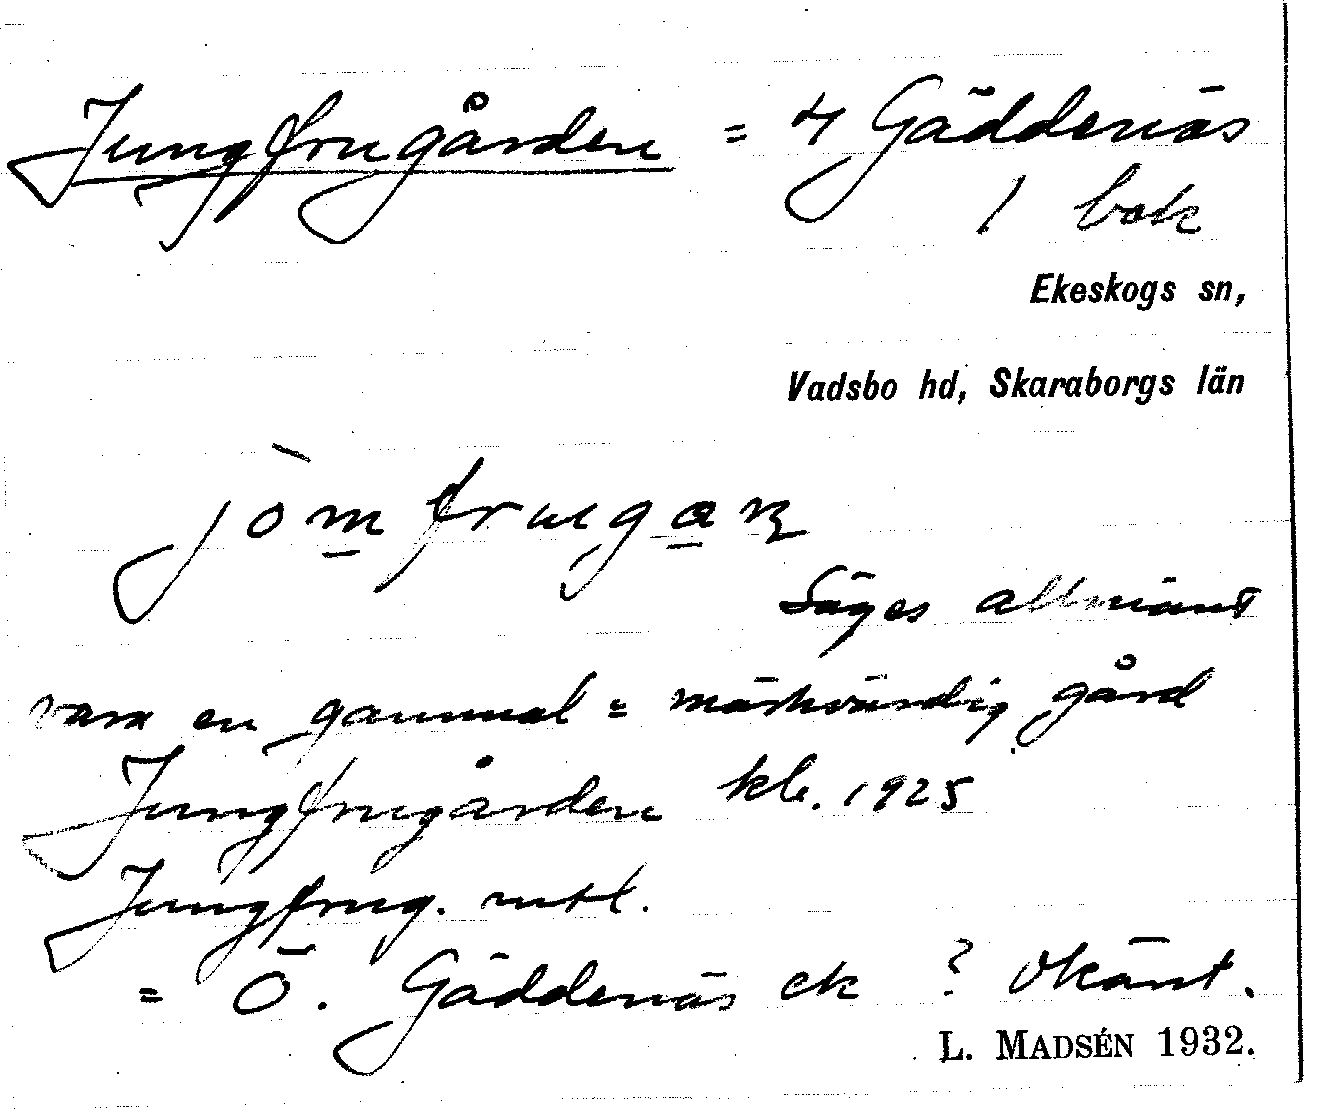 Jungfrugården = 4 Gäddenäs
1 bok
Ekeskogs sn,
Vadsbo hd, Skaraborgs län
jòmfrugaɳ
Säges allmänt
vara en gammal = märkvärdig gård
Jungfrugården kb. 1925
Jungfrug. mtl.
= Ö. Gäddenäs ek ? Okänt.
L. MADSÉN 1932.